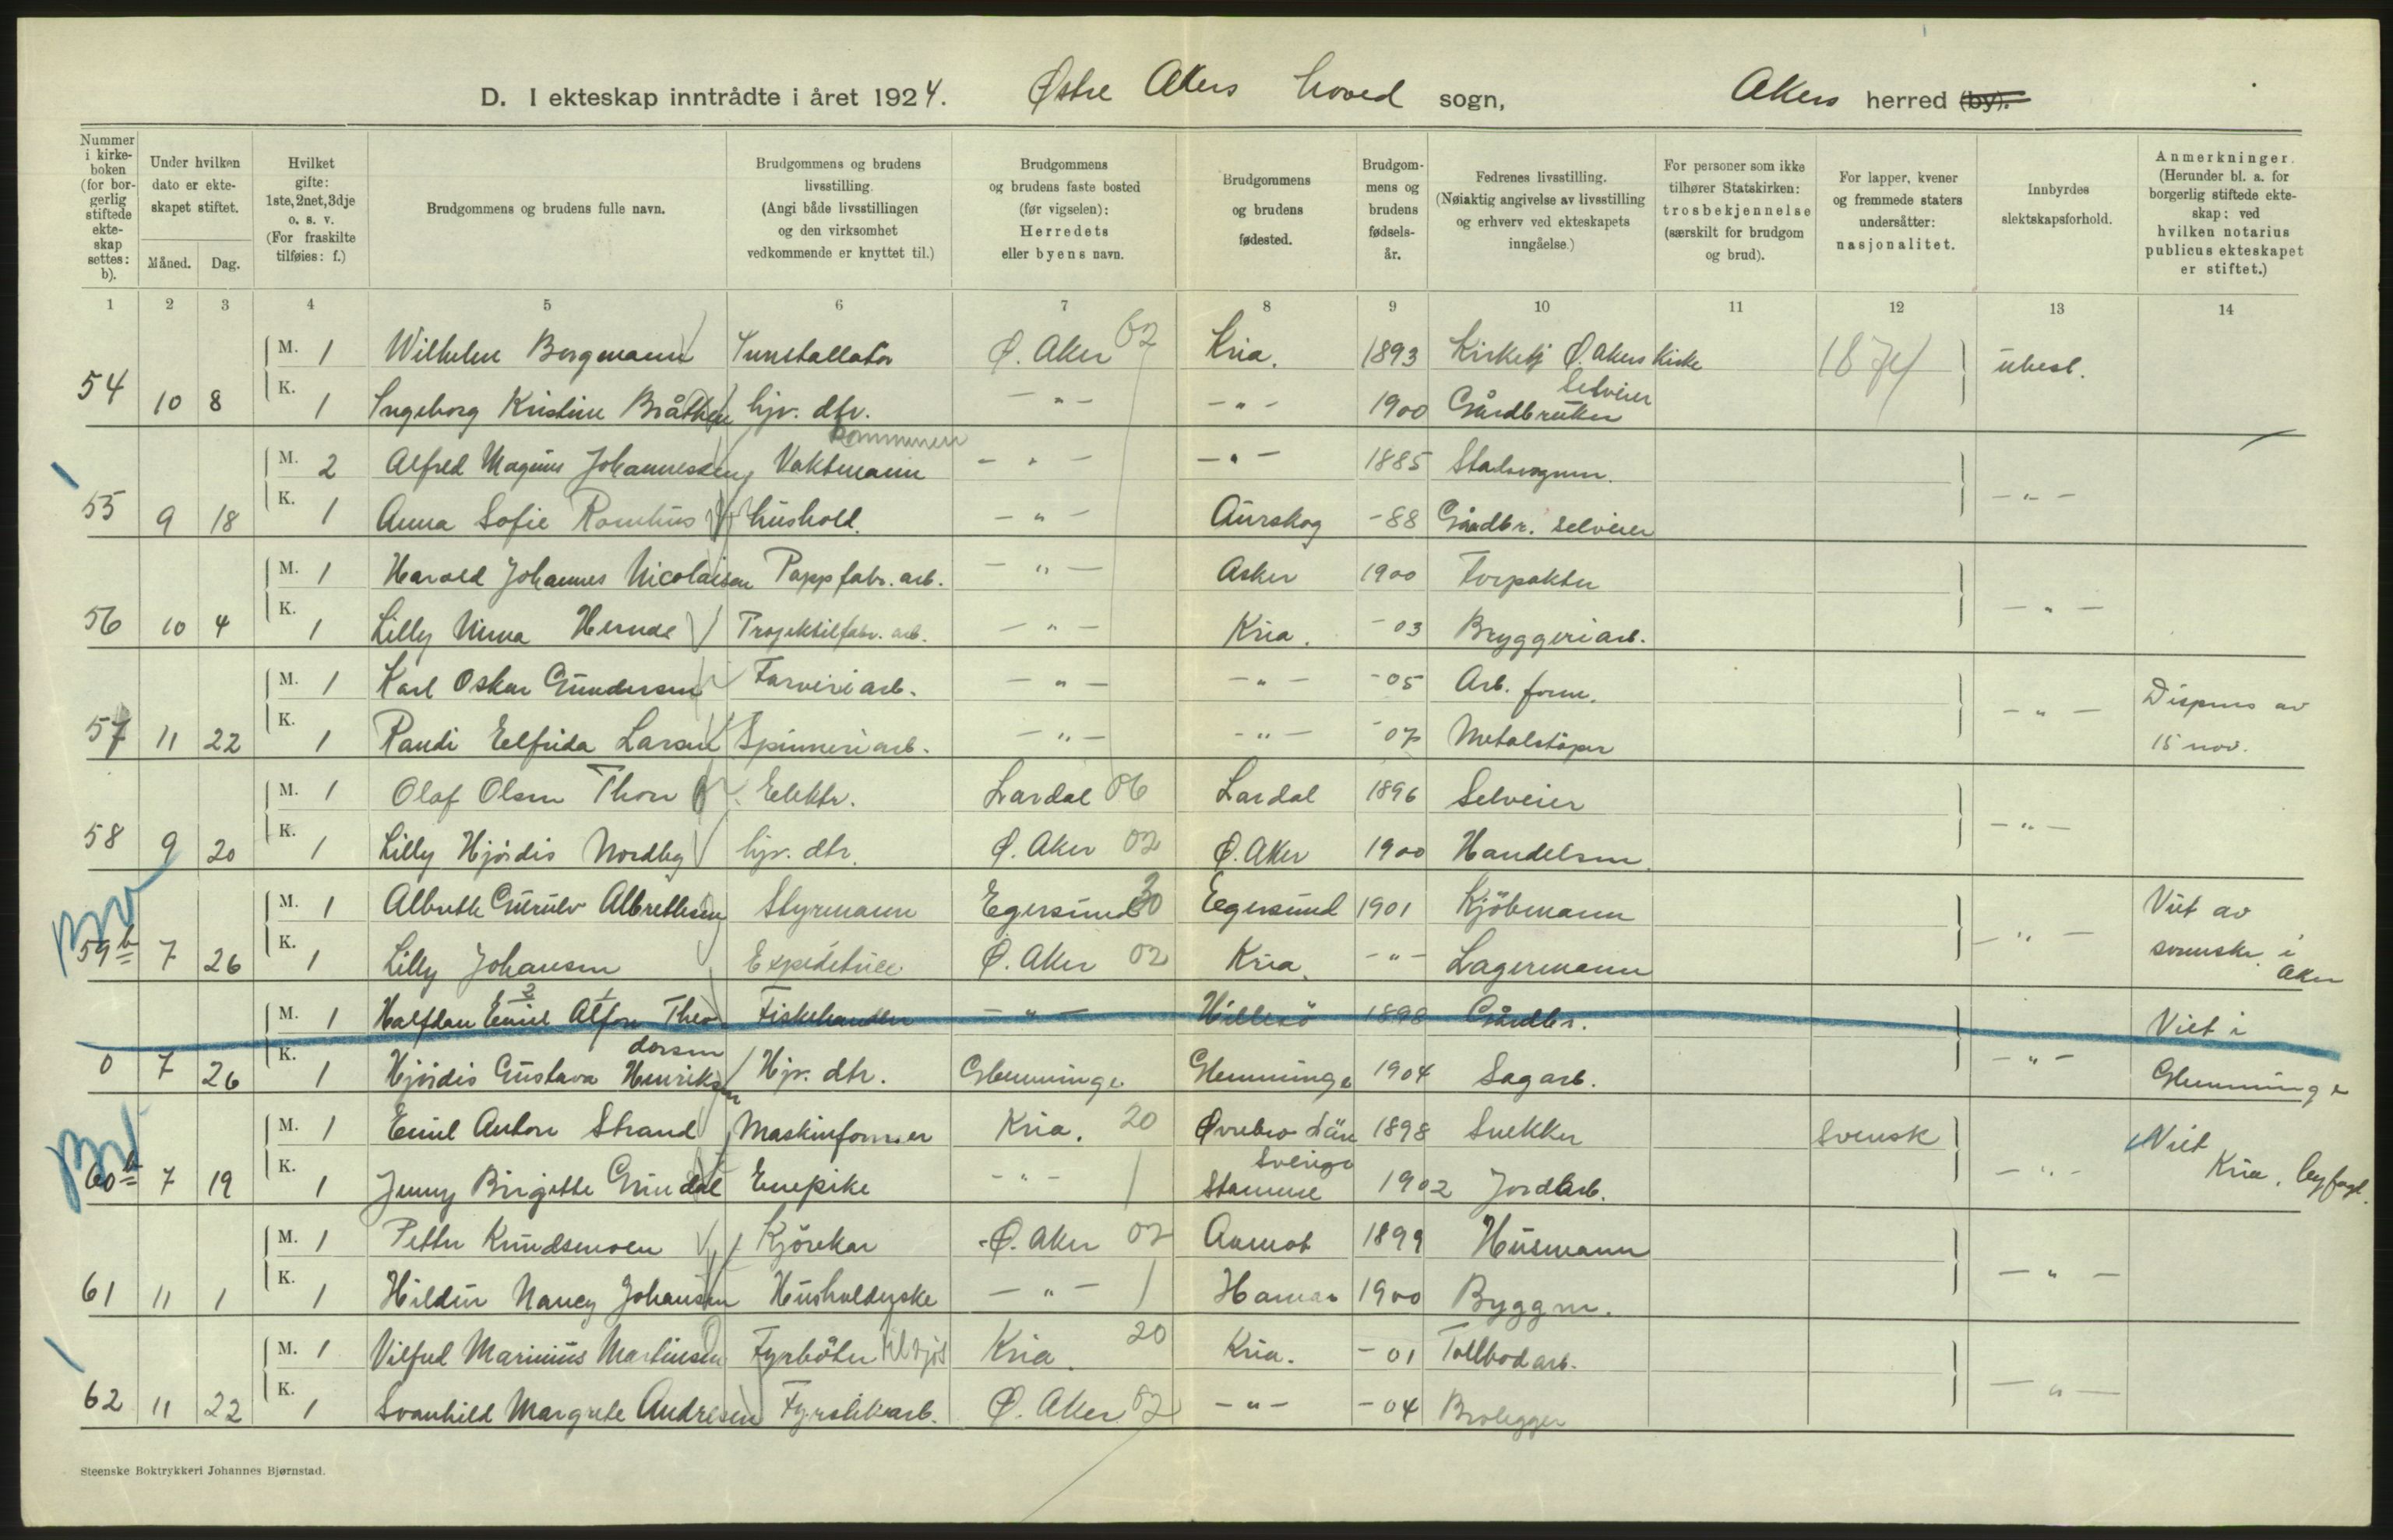 D. I ekteskap inntrådte i året 1924. Østre Akers hoved sogn, Akers herred (by).
Nummer i kirke-boken (for bor-gerlig stiftede ekte-skap settes: b).
Under hvilken dato er ekte-skapet stiftet.
Måned. Dag.
Hvilket gifte: 1ste, 2net, 3dje o. s. v. (For fraskilte tilføies: f.)
Brudgommens og brudens fulle navn.
Brudgommens og brudens livsstilling. (Angi både livsstillingen og den virksomhet vedkommende er knyttet til.)
Brudgommens og brudens faste bosted (før vigselen): Herredets eller byens navn.
Brudgommens og brudens fødested.
Brudgom-mens og brudens fødsels-år.
Fedrenes livsstilling. (Nøiaktig angivelse av livsstilling og erhverv ved ekteskapets inngåelse.)
For personer som ikke tilhører Statskirken: trosbekjennelse (særskilt for brudgom og brud).
For lapper, kvener og fremmede staters undersåtter: nasjonalitet.
Innbyrdes slektskapsforhold.
Anmerkninger. (Herunder bl. a. for borgerlig stiftede ekte-skap: ved hvilken notarius publicus ekteskapet er stiftet.)
1 2 3 4 5 6 7 8 9 10 11 12 13 14
M. 1 Wilhelm Borgmann Ø. Aker 02 Kria. 1893 Kirketj Ø. Akers Kirke 1874 ubesl.
54 10 8 K. 1 Ingeborg Kristine Bråthen hjv. dtr. -"- -"- 1900 Gårdbruker Selveier
M. 2 Alfred Magnus Johannessen Vaktmann kommunen -"- -"- 1885
55 9 18 K. 1 Anna Sofie Romhus hushold. -"- Aurskog -88 Gårdbr. selveier -"-
M. 1 Harald Johannes Nicolaisen Pappfabr. arb. -"- Asker 1900 Forpakter
56 10 4 K. 1 Lilly Hernde Projektilfabr. arb. -"- Kria. -03 Bryggeriarb. -"-
M. 1 Karl Oskar Gundersen Farveriarb. -"- -"- -05 Arb. form. Dispens av
57 11 22 K. 1 Randi Elfrida Larsen Spinneriarb. -"- -"- -07 Metalstöper -"- 15 nov.
M. 1 Olaf Olsen Thon Elektr. Lardal 06 Lardal 1896 Selveier
58 9 20 K. 1 Lilly Hjördis Nordby hjv. dtr. Ø. Aker 02 Ø. Aker 1900 Handelsm. -"-
M. 1 Albreth Albrethsen Styrmann Egersund 30 Egersund 1901 Kjöbmann Viet av
59b 7 26 K. 1 Lilly Johansen Expeditrice Ø. Aker 02 Kria. -"- Lagermann -"- i Aker
M. 1 Halfdan Emil Alfon Theo- Fiskehandler -"- Hillesö 1898 Gårdbr. Viet i
dorsen
0 7 26 K. 1 Hjördis Gustava Henriksen Hjv. dtr. Glemminge Glemminge 1904 Sagarb. -"- Glemminge
M. 1 Emil Anton Strand Maskinformer Kria. 20 Örebro Län Sverige 1898 Snekker Svensk Viet
60b 7 19 K. 1 Jenny Birgitte Grindal Enepike -"- 1902 Jordarb. -"- Kria. byfogd.
M. 1 Petter Knudsmoen Kjörekar Ø. Aker 02 Aamot 1899 Husmann
61 11 1 K. 1 Hildur Nancy Johansen Husholderske -"- Hamar 1900 Byggm. -"-
M. 1 Vilfred Marinius Martinsen Fyrböter til sjös Kria. 20 Kria. -01 Tollbodarb.
62 11 22 K. 1 Svanhild Margrete Andresen Fyrstikarb. Ø. Aker 02 -"- -04 Brolegger -"-
Steenske Boktrykkeri Johannes Bjørnstad.